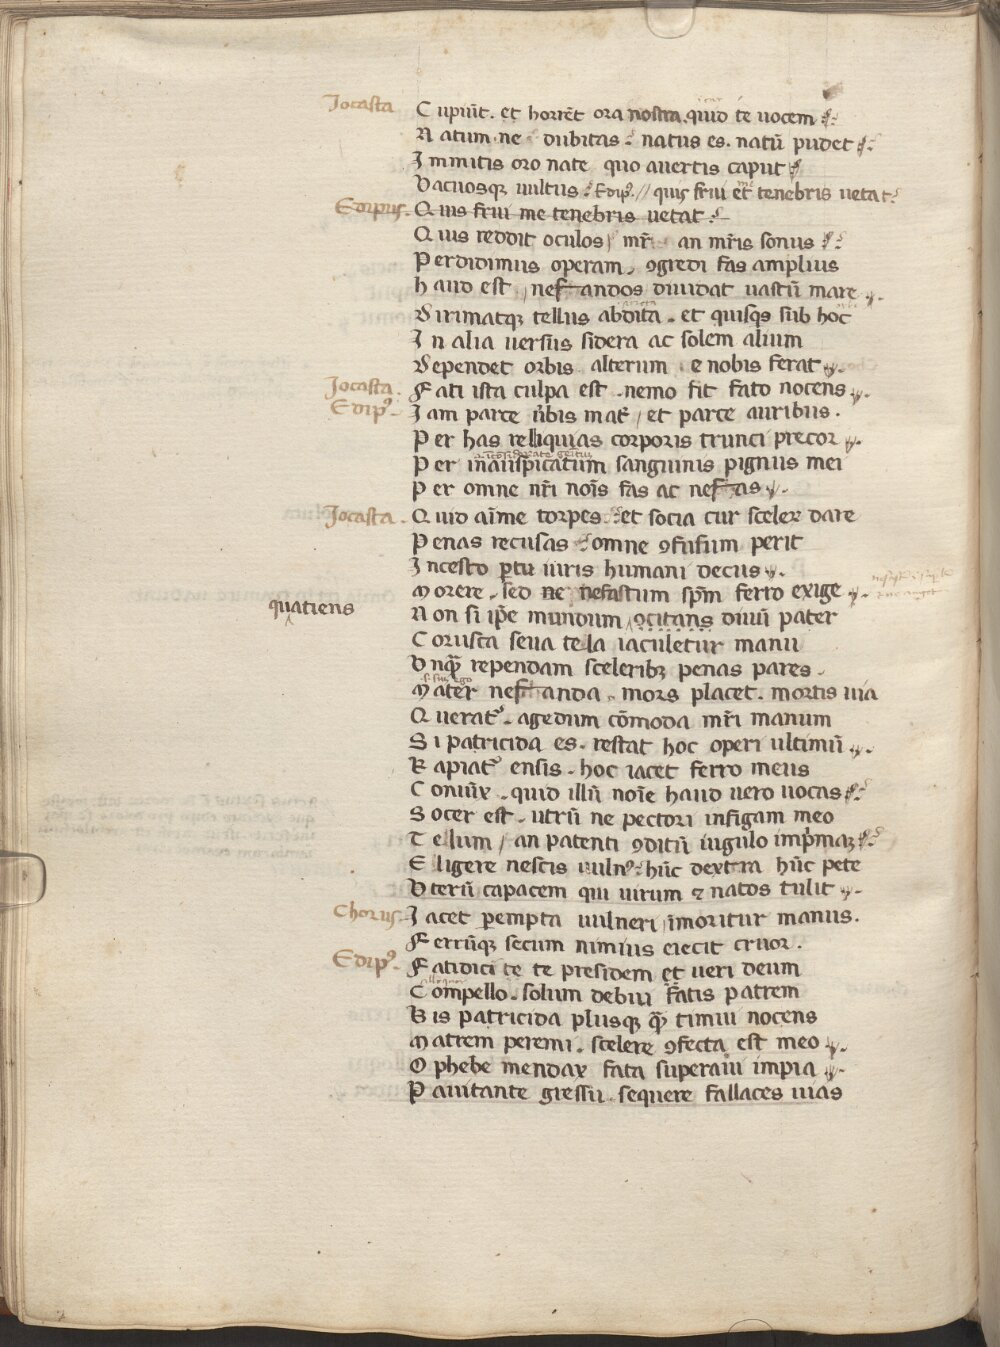 Jocasta Cupiūt. et horrēt ora nostra. quid te uocem
Natum ne dubitas. natus es. natū pudet
Inmitis oro nate quo auertis caput
Vacuosqꝫ uultus. Edipꝰ // quis frui et tenebris uetat
Edipus. Quis frui me tenebris uetat.
Quis reddit oculos / mr̄i an mr̄is sonus
Perdidimus operam. ꝯgredi fas amplius
haud est / nefandos diuidat uastū mare
Dirimatqꝫ tellus abdita. et quisqs sub hoc
In alia uersus sidera ac solem alium
Dependet orbis alterum e nobis ferat
Jocasta. Fati ista culpa est. nemo fit fato nocens
Edipꝰ. Iam parce uͦbis mat̄ / et parce auribus.
Per has relliquias corporis trunci precor
Per inauspicatum sanguinis pignus mei
Per omne nr̄i nōis fas ac nefas
Jocasta. Quid aīme torpes. et socia cur sceleꝝ dare
Penas recusas omne ꝯfusum perit
Incesto ꝑtu iuris humani decus
morere. sed ne nefastum spm̄ ferro exige
quatiens Non si ip̄e mundum ꝯcitans diuū pater
Corusca seua tela iaculetur manu
Vnqᷓ rependam sceleribꝫ penas pares.
mater nefanda. mors placet. mortis uia
Queratᷣ. agedum cōmoda mr̄i manum
Si patricida es. restat hoc operi ultimū
Rapiatᷣ ensis. hoc iacet ferro meus
Coniūx. quid illū noīe haud uero uocas
Socer est. utrū ne pectori infigam meo
Tellum / an patenti ꝯditū iugulo imp̄maꝫ
Eligere nescis uulnꝰ. hūc dextra hūc pete
Vterū capacem qui uirum ⁊ natos tulit
Chorus. Iacet ꝑempta uulneri īmoritur manus.
Ferrūqꝫ secum nimius eiecit cruor.
Edipꝰ. Fatidici te te presidem et ueri deum
Compello. solum debui fatis patrem
Bis patricida plusqꝫ qᷓ timui nocens
matrem peremi. scelere ꝯfecta est meo
O phebe mendax fata superaui impia
Pauitante gressu. sequere fallaces uias